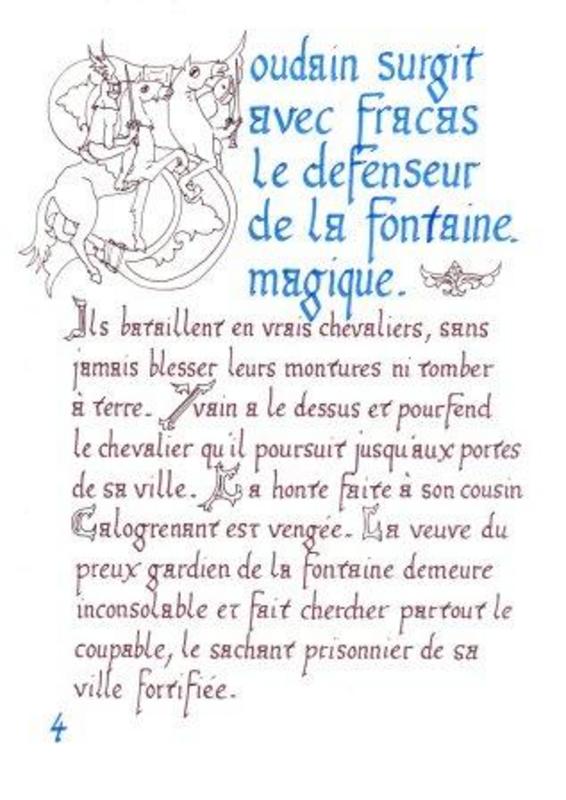 Soudain surgit
avec fracas
le defenseur
de la fontaine
magique.
Ils bataillent en vrais chevaliers, sans
jamais blesser leurs montures ni tomber
à terre. Yvain a le dessus et pourfend
le chevalier qu'il poursuit jusqu'aux portes
de sa ville. La honte faite à son cousin
Calogrenant est vengée. La veuve du
preux gardien de la fontaine demeure
inconsolable et fait chercher partout le
coupable, le sachant prisonnier de sa
ville fortifiée.
4